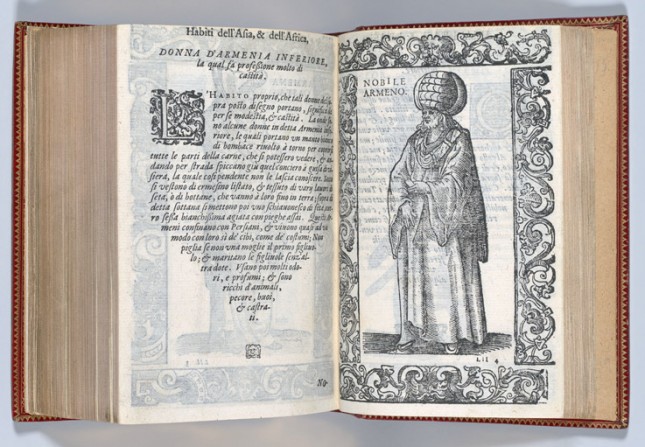 Habiti dell'Asia, & dell'Africa,
DONNA D'ARMENIA INFERIORE,
la qual fà professione molto di
castità.
L'HABITO proprio, che tali donne
pra posto disegno portano, significa
per se modestia, & castità. La onde
no alcune donne in detta Armenia
riore, le quali portano un manto
di bombace rivolto à torno per
tutte le parti della carne, che si potessero vedere, &
dando per strada spiccano già quel conciero à guisa di
siera, la quale cosi pendente non le lascia conoscere.
si vestono di ermesino listato, & tessuto di varii lavori
seta, ò di bottane, che vanno à loro fino in terra; sopra
detta sottana si mettono poi uno schiavonesco di seta
ro sessa bianchissima agiata con pieghe assai. Questi
meni confinano con Persiani, & vivono quasi ad un
modo con loro si de' cibi, come de' costumi; Non
piglia se non una moglie il primo figliuo-
lo; & maritano le figliuole senz'al-
tra dote. Usano poi molti odo-
ri, e profumi; & sono
ricchi d'animali,
pecore, buoi,
& castra-
ti.
NOBILE
ARMENO.